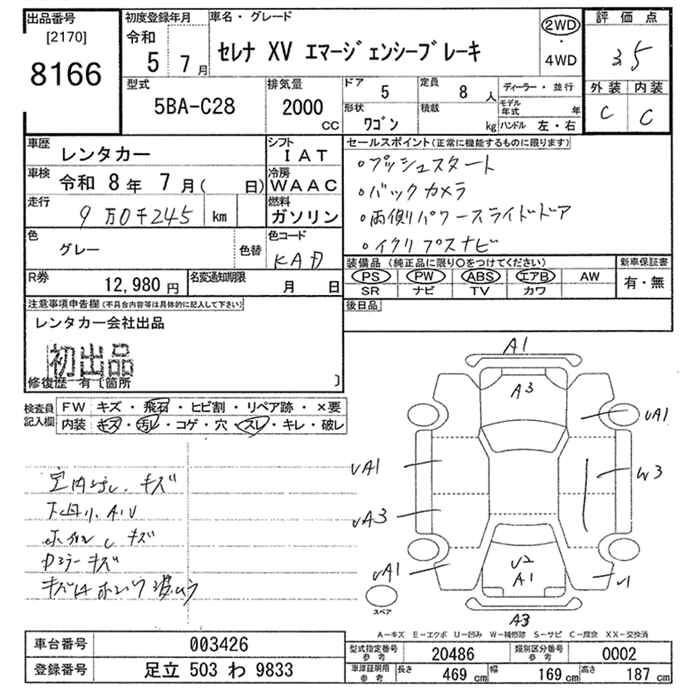 出品番号
[2170]
8166
初度登録年月
令和
5 7月
車名・グレード
セレナ XV エマージェンシーブレーキ
2WD
・
4WD
評価点
3.5
外装 内装
C C
型式
5BA-C28
排気量
2000
CC
ドア
5
定員
8 人
形状
ワゴン
積載
kg
ディーラー・並行
モデル年式 年
ハンドル 左・右
車歴
レンタカー
シフト
IAT
車検
令和 8年 7月( 日)
冷房
WAAC
走行
9万0千245 km
燃料
ガソリン
色
グレー
色替
色コード
KAD
R券
12,980 円
名変通知期限
月 日
セールスポイント(正常に機能するものに限ります)
○プッシュスタート
○バックカメラ
○両側パワースライドドア
○イクリプスナビ
装備品(純正品に限り〇をつけてください)
PS PW ABS エアB AW
SR ナビ TV カワ
新車保証書
有・無
後日品
注意事項申告欄(不具合内容等は具体的に記入して下さい)
レンタカー会社出品
初出品
修復歴 有〔箇所 〕
検査員
記入欄
FW キズ・飛石・ヒビ割・リペア跡・×要
内装 キズ・汚レ・コゲ・穴・スレ・キレ・破レ
キズ
下廻り
キズ
カラーキズ
A1
A3
UA1
UA1
W3
UA3
UA1
U2
A1
U1
A3
スペア
A－キズ E－エクボ U－凹み W－補修跡 S－サビ C－腐食 XX－交換済
車台番号
003426
登録番号
足立 503 わ 9833
型式指定番号
参考
20486
類別区分番号
参考
0002
車庫証明用
参考
長さ
469 cm
幅
169 cm
高さ
187 cm